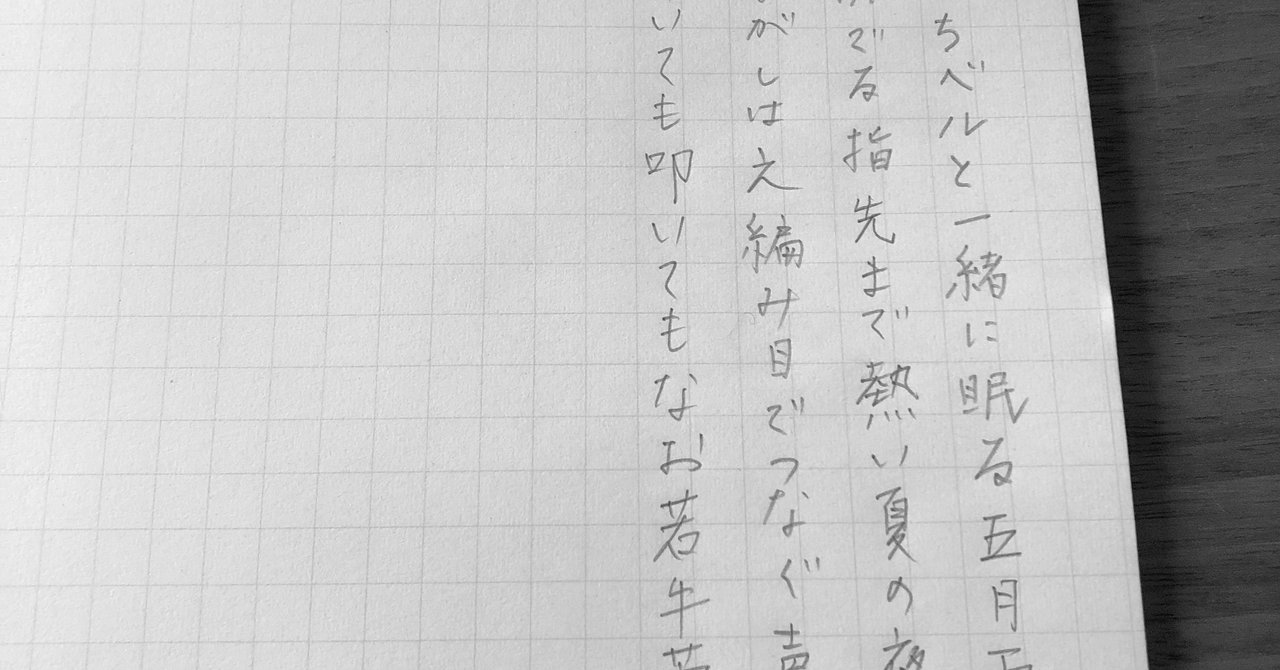 ちベルと一緒に眠る五月
でる指先まで熱い夏の
がしはえ編み目でつなぐ
いても叩いてもなお若牛